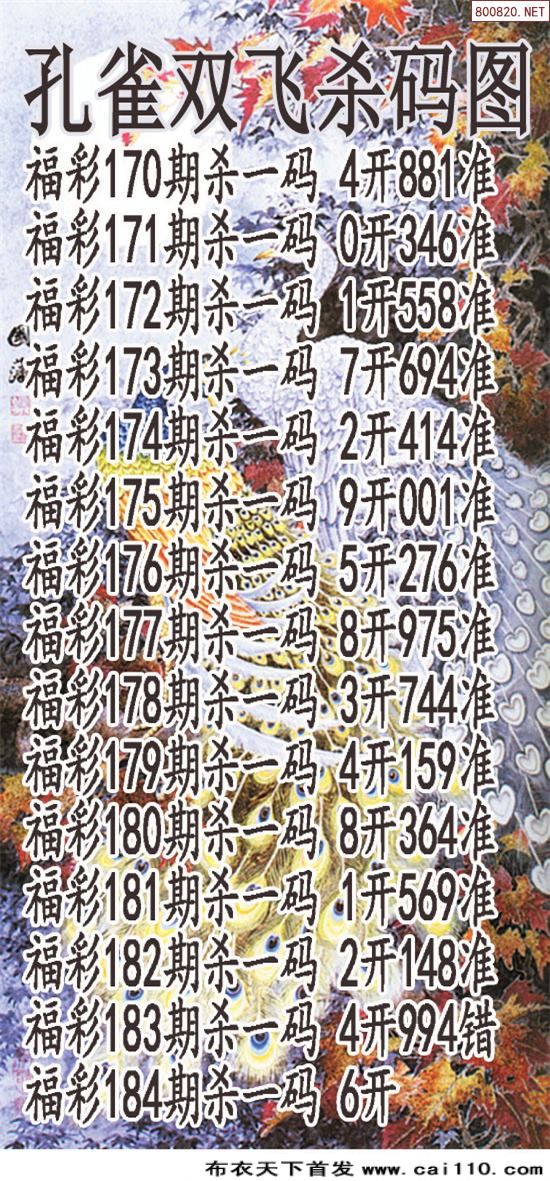 800820.NET
孔雀双飞杀码图
福彩170期杀一码 4开881准
福彩171期杀一码 0开346准
福彩172期杀一码 1开558准
福彩173期杀一码 7开694准
福彩174期杀一码 2开414准
福彩175期杀一码 9开001准
福彩176期杀一码 5开276准
福彩177期杀一码 8开975准
福彩178期杀一码 3开744准
福彩179期杀一码 4开159准
福彩180期杀一码 8开364准
福彩181期杀一码 1开569准
福彩182期杀一码 2开148准
福彩183期杀一码 4开994错
福彩184期杀一码 6开
布衣天下首发 www.cai110.com